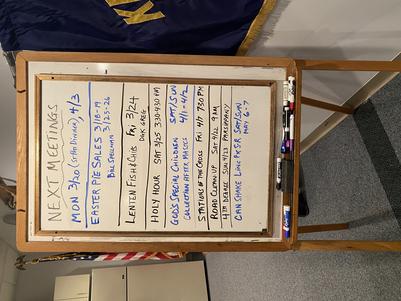 NEXT MEETINGS
MON 3/20 (STEAK DINNER), 4/3
EASTER PIE SALES 3/18-19
3/25-26
BILL SPELLMAN
LENTEN FISH & CHIPS FRI 3/24
DICK GREG
HOLY HOUR SAT 3/25 3:30-4:30 PM
GOD'S SPECIAL CHILDREN SAT/SUN
COLLECTION AFTER MASSES 4/1-4/2
STATIONS OF THE CROSS FRI 4/7 7:30 PM
ROAD CLEAN UP SAT 4/22 9AM
4TH DEGREE SUN 4/23
CAN SHAKE SAT/SUN
MAY 6-7